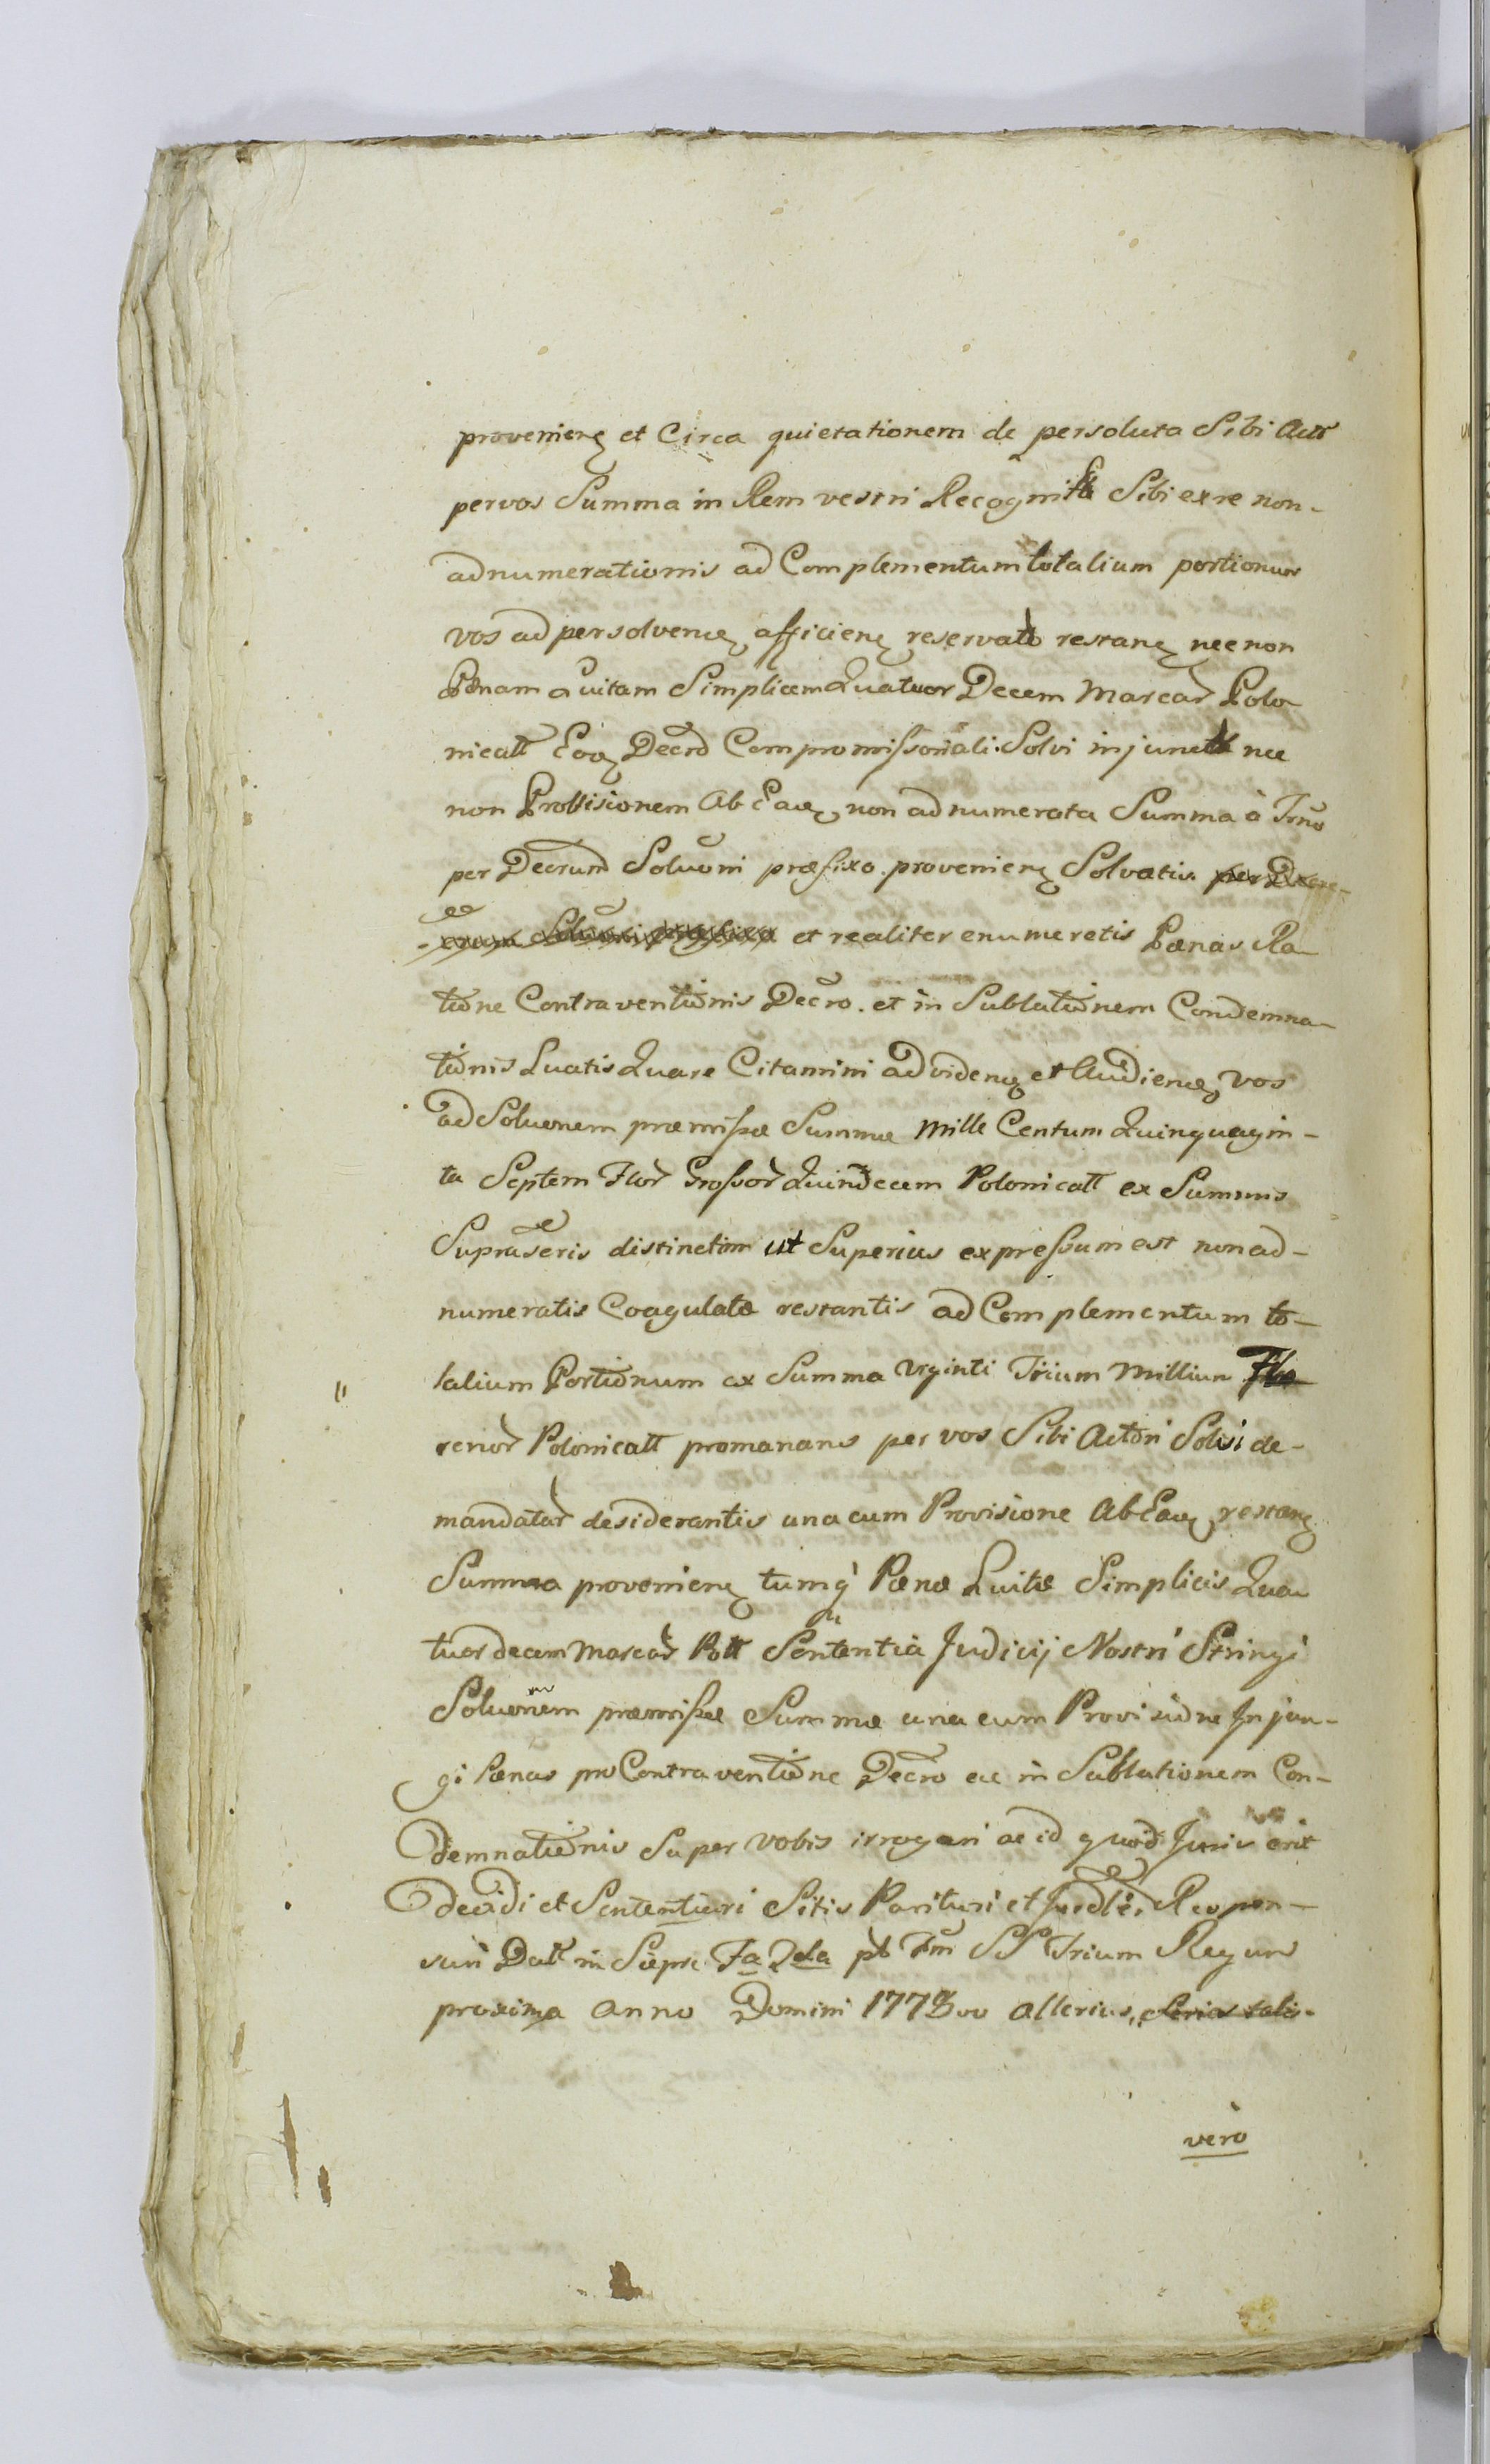 provenienꝫ et Circa quietationem de persoluta Sibi Actr
per vos Summa in Rem vestri Recognita Sibi ex re non-
adnumerationis ad Complementum totalium portionum
vos ad persolvenꝫ afficienꝫ reservato restanꝫ necnon
Pœnam Luitam Simplicem Quatuor Decem Marcar Polo-
nicall Eoꝫ Decro Compromissoriali Solvi injunctā nec
non Provisionem Ab Eaꝫ non adnumerata Summa à Tmo
per Decrum Soluoni præfixo provenienꝫ Solvatis per Decre-
-erum Soluoni præfixo et realiter enumeretis Pœnas Ra-
tione Contraventionis Decro. et in Sublationem Condemna-
tionis Luatis Quare Citamini ad videnꝫ et Audienꝫ vos
ad Soluonem præmissæ Summæ Mille Centum Quinquagin-
ta Septem Flor Grossor Quindecem Polonicall ex Summis
Suprascris distinctim ut Superius expressum est non ad-
numeratis Coagulatæ restantis ad Complementum to-
talium Portionum ex Summa Viginti Trium Millium Flo
renor Polonicall promanans per vos Sibi Actori Solvi de-
mandatar desiderantis una cum Provisione Ab Eaꝫ restanꝫ
Summa provenienꝫ tumq̀ Pœnæ Luitæ Simplicis Qua-
tuordecem Marcar Poll Sententia Judicij Nostri Stringi
Soluonem præmissæ Summæ una cum Provisione Injun-
gi Pœnas pro Contraventione Decro ac in Sublationem Con-
demnationis Super vobis irrogari ac id quod Juris erit
decidi et Sententiari Sitis Parituri et Respon-
suri Dat in Fa 2da pt Fm SS Trium Regum
proxima Anno Domini 1778vo Allerius, Serius talis-
vero